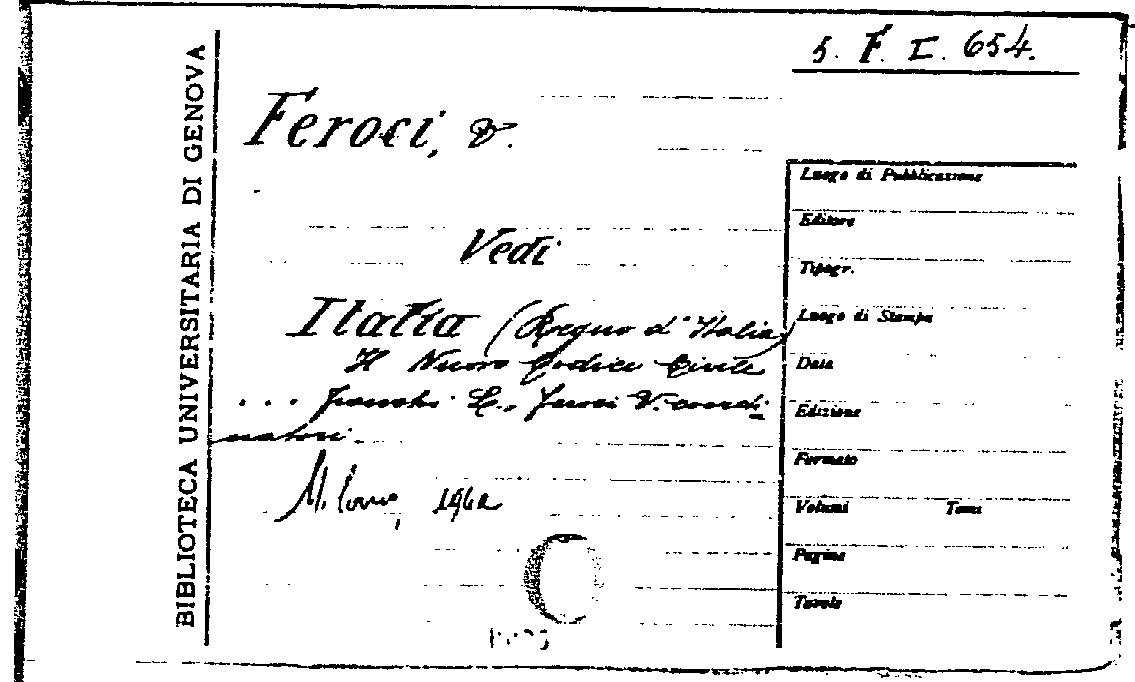 5. F. I. 654.
BIBLIOTECA UNIVERSITARIA DI GENOVA
Feroci, V.
Vedi
Italia (Regno d'Italia)
Il Nuovo Codice Civile
... Franchi L., Feroci V. coordi-
natori.
Milano, 1942
Luogo di Pubblicazione
Editore
Tipogr.
Luogo di Stampa
Data
Edizione
Formato
Volumi Tomi
Pagine
Tavole